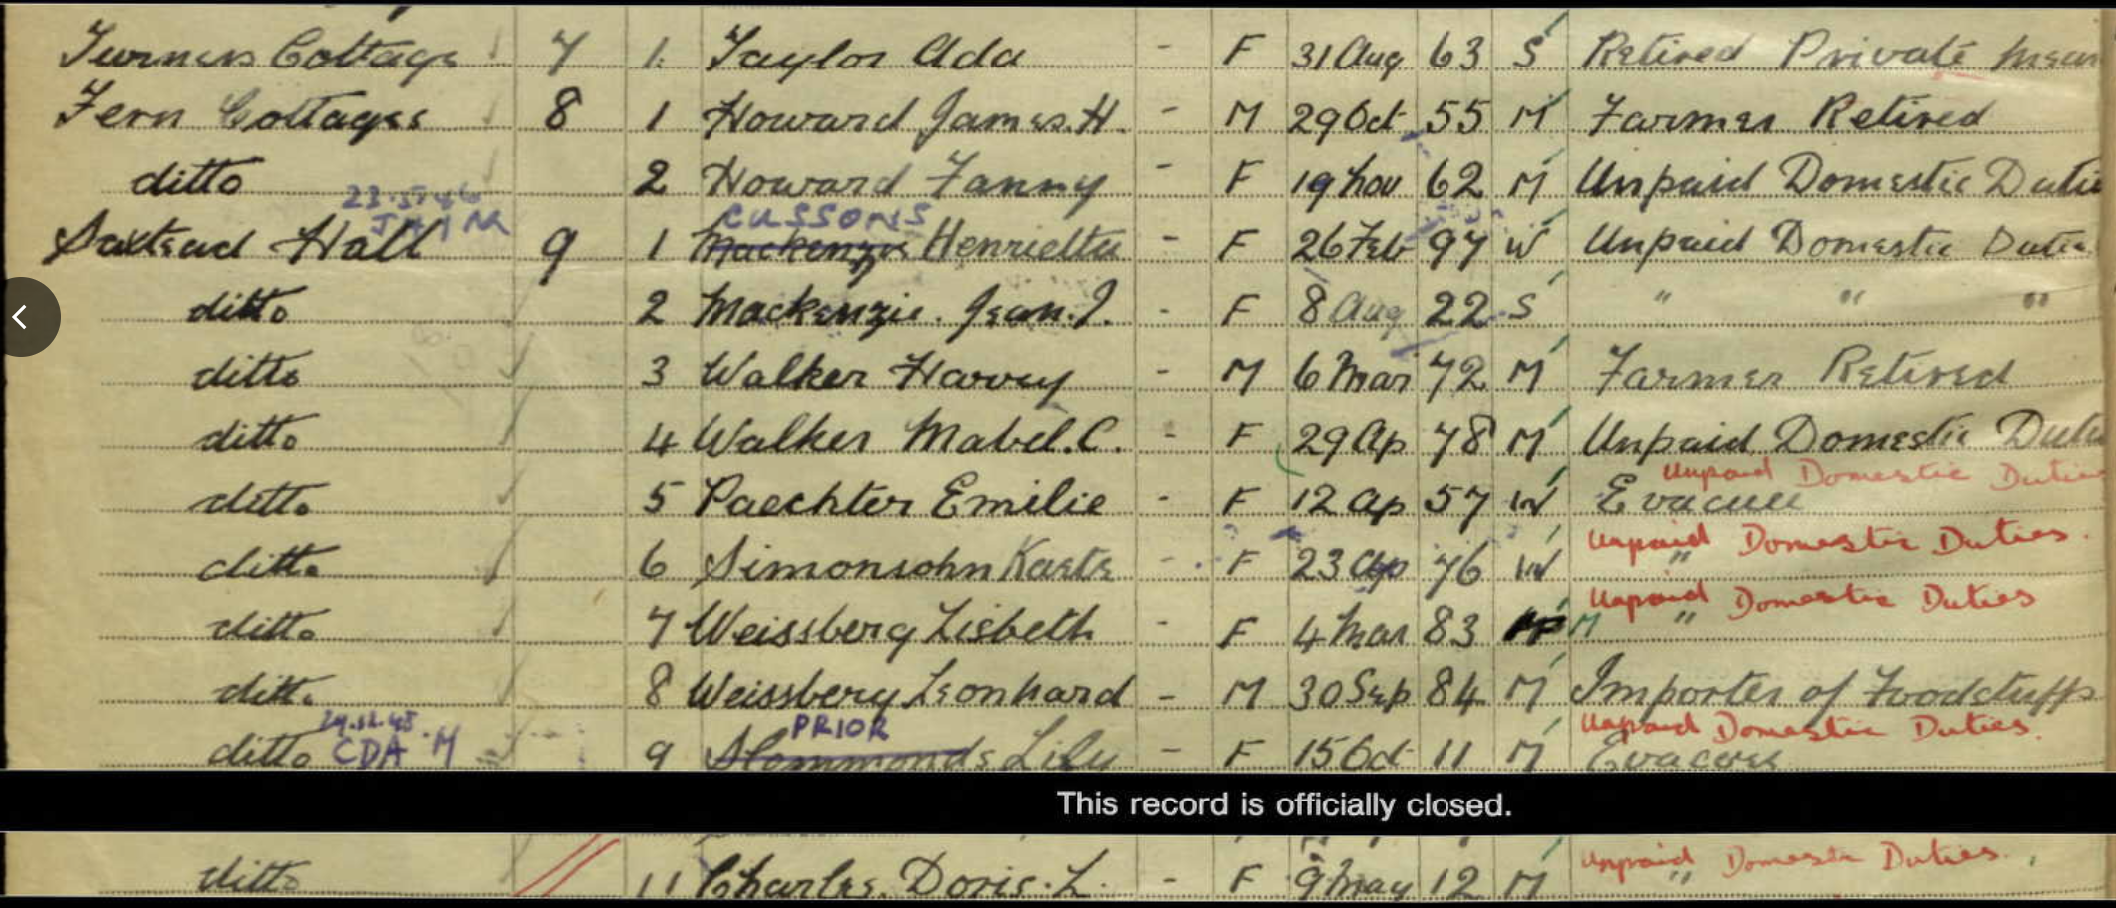 Turners Cottage 7 1. Taylor Ada - F 31 Aug 63 S Retired Private Mean
Fern Cottages 8 1 Howard James.H. - M 29 Oct 55 M Farmer Retired
ditto 2 Howard Fanny - F 19 Nov 62 M Unpaid Domestic Dutie
CUSSONS
Saxtead Hall 9 1 Mackenzie Henrietta - F 26 Feb 97 W Unpaid Domestic Dutie
ditto 2 Mackenzie. Jean.I. - F 8 Aug 22 S " " "
ditto 3 Walker Harvey - M 6 Mar 72 M Farmer Retired
ditto 4 Walker Mabel.C. - F 29 Ap 78 M Unpaid Domestic Dutie
Unpaid Domestic Duties
ditto 5 Paechter Emilie - F 12 Ap 57 W Evacuee
Unpaid Domestic Duties.
ditto 6 Simonsohn - F 23 Ap 76 W "
Unpaid Domestic Duties
ditto 7 Weissberg Lisbeth F 4 Mar 83 M "
ditto 8 Weissberg Leonhard - M 30 Sep 84 M Importer of Foodstuffs
PRIOR Unpaid Domestic Duties.
ditto CDA M 9 Lily - F 15 Oct 11 M Evacuee
This record is officially closed.
Unpaid Domestic Duties.
ditto 11 Charles. Doris.L. - F 9 May 12 M "